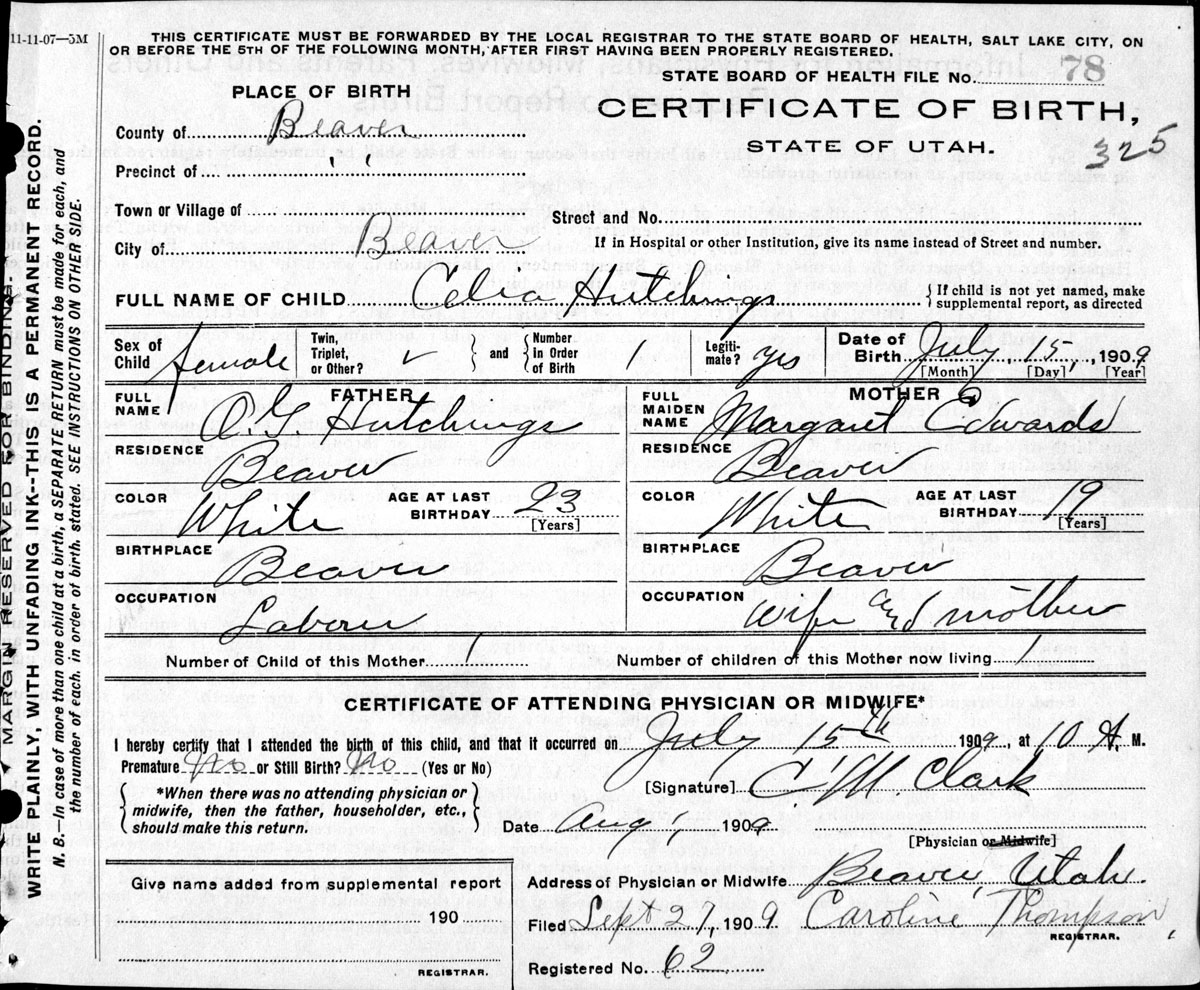 11-11-07—5M
THIS CERTIFICATE MUST BE FORWARDED BY THE LOCAL REGISTRAR TO THE STATE BOARD OF HEALTH, SALT LAKE CITY, ON
OR BEFORE THE 5TH OF THE FOLLOWING MONTH, AFTER FIRST HAVING BEEN PROPERLY REGISTERED.
STATE BOARD OF HEALTH FILE No. 78
PLACE OF BIRTH
CERTIFICATE OF BIRTH,
STATE OF UTAH.
325
County of Beaver
Precinct of " "
Town or Village of
Street and No.
City of Beaver
If in Hospital or other Institution, give its name instead of Street and number.
FULL NAME OF CHILD Celia Hutchings
{ If child is not yet named, make
supplemental report, as directed
Sex of Child female
Twin, Triplet, or Other? ✓ } and { Number in Order of Birth 1
Legiti-mate? yes
Date of Birth July 15, 1909
[Month] [Day] [Year]
FATHER
FULL NAME Hutchings
RESIDENCE Beaver
COLOR White
AGE AT LAST BIRTHDAY 23
[Years]
BIRTHPLACE Beaver
OCCUPATION Laborer
MOTHER
FULL MAIDEN NAME Margaret Edwards
RESIDENCE Beaver
COLOR White
AGE AT LAST BIRTHDAY 19
[Years]
BIRTHPLACE Beaver
OCCUPATION Wife and mother
Number of Child of this Mother 1
Number of children of this Mother now living 1
CERTIFICATE OF ATTENDING PHYSICIAN OR MIDWIFE*
I hereby certify that I attended the birth of this child, and that it occurred on July 15th 1909, at 10 A. M.
Premature No or Still Birth? No (Yes or No)
{ *When there was no attending physician or
midwife, then the father, householder, etc.,
should make this return. }
[Signature] C. M. Clark
Date Aug 1, 1909
[Physician or Midwife]
Address of Physician or Midwife Beaver, Utah.
Give name added from supplemental report
190
REGISTRAR.
Filed Sept 27, 1909 Caroline Thompson,
REGISTRAR.
Registered No. 62
MARGIN RESERVED FOR BINDING.
WRITE PLAINLY, WITH UNFADING INK--THIS IS A PERMANENT RECORD.
N. B.—In case of more than one child at a birth, a SEPARATE RETURN must be made for each, and
the number of each, in order of birth, stated. SEE INSTRUCTIONS ON OTHER SIDE.